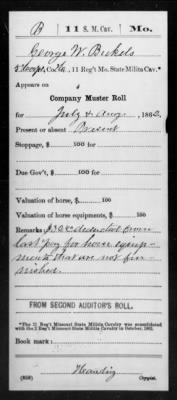 B | 11 S. M. Cav. | Mo.
George W. Bickels
, Co. , 11 Reg't Mo. State Militia Cav.*
Appears on
Company Muster Roll
for July & Aug , 1862.
Present or absent Present
Stoppage, $ 100 for
Due Gov't, $ 100 for
Valuation of horse, $ 100
Valuation of horse equipments, $ 100
Remarks: deducted from
last pay for horse equip-
ments that are not fur-
nished.
FROM SECOND AUDITOR'S ROLL.
*The 11 Reg't Missouri State Militia Cavalry was consolidated
with the 2 Reg't Missouri State Militia Cavalry in October, 1862.
Book mark:
Harding
(858) Copyist.